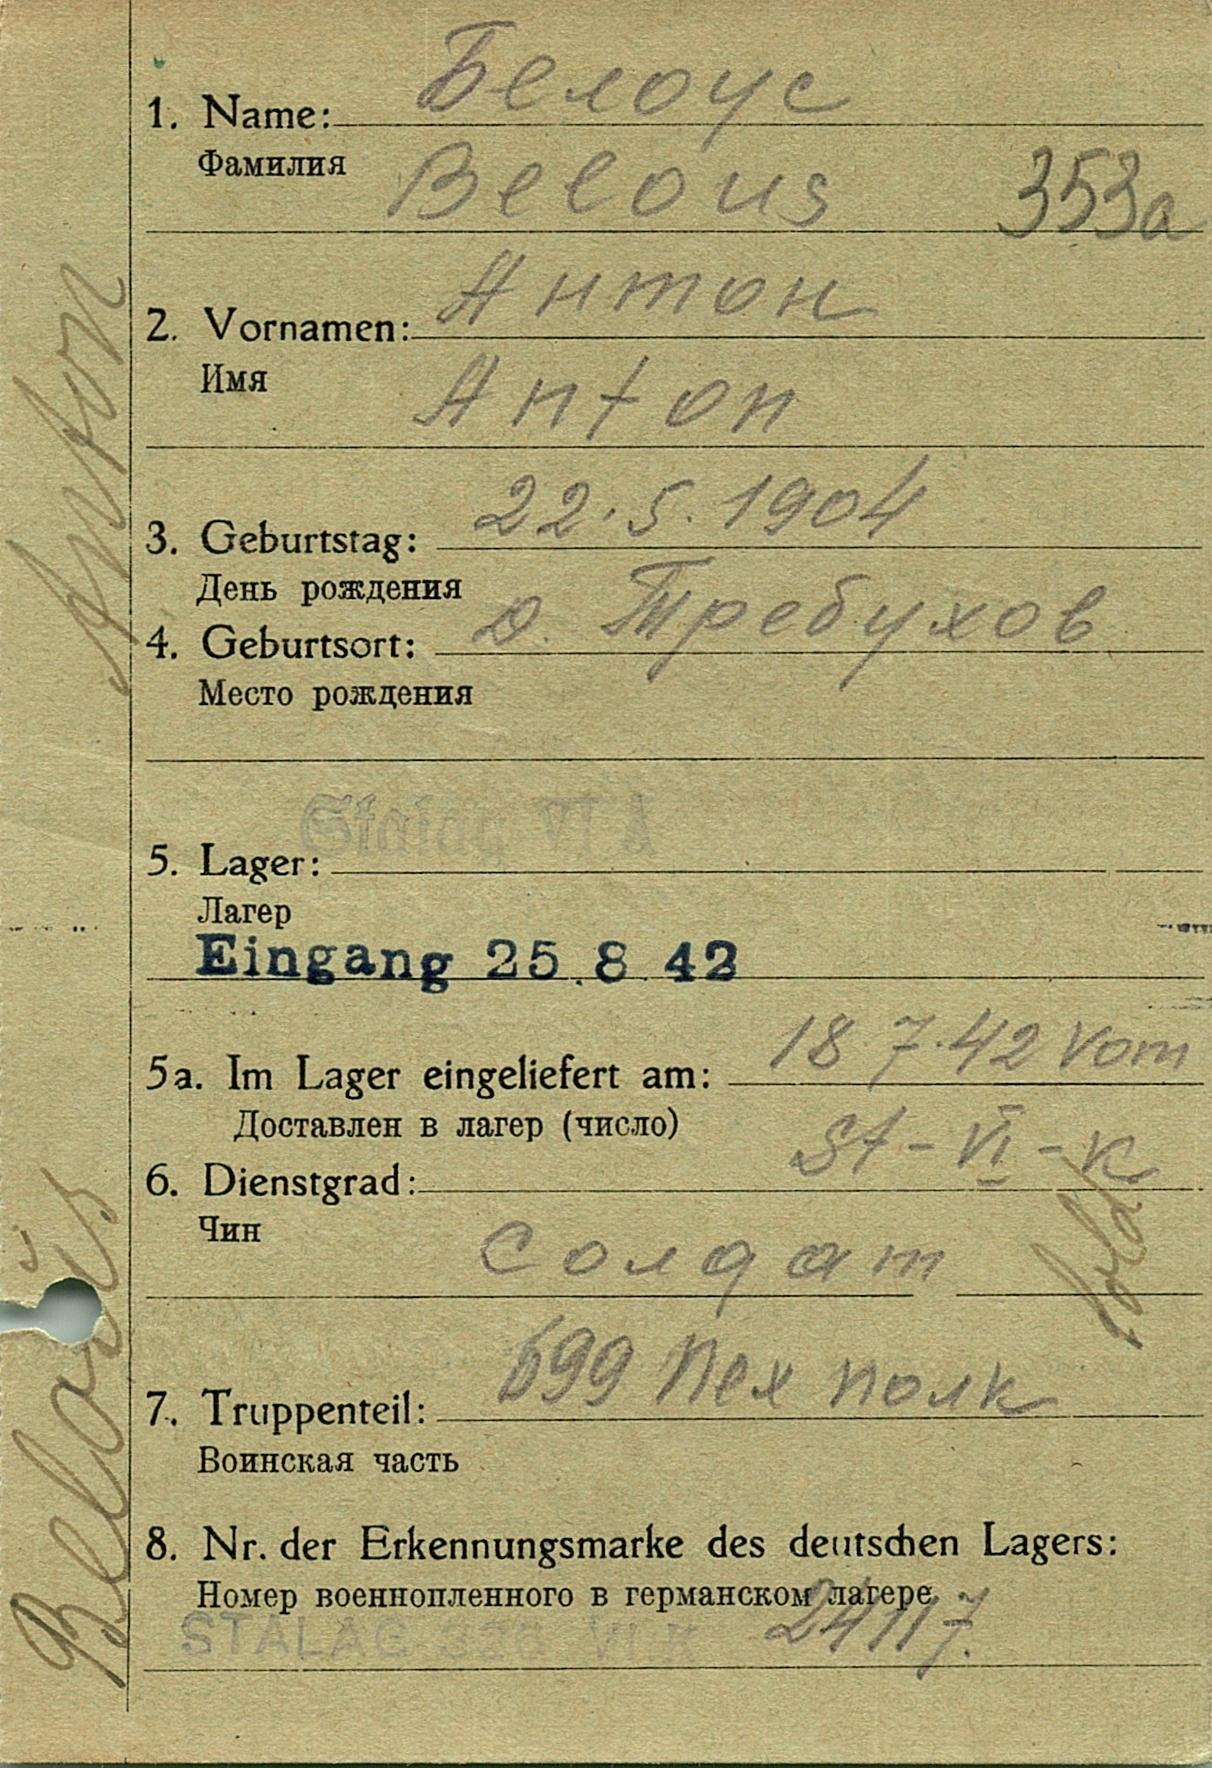 1. Name: Белоус
Фамилия
Belous 353a
2. Vornamen: Антон
Имя
Anton
3. Geburtstag: 22.5.1904
День рождения
4. Geburtsort: д. Требухов
Место рождения
Stalag VI A
5. Lager:
Лагер
Eingang 25.8.42
5a. Im Lager eingeliefert am: 18.7.42 Vom
Доставлен в лагер (число)
St-VI-K
6. Dienstgrad:
Чин
Sold
Солдат
7. Truppenteil: 699 Пех полк
Воинская часть
8. Nr. der Erkennungsmarke des deutschen Lagers:
Номер военнопленного в германском лагере
STALAG 326 VI K 24117.
Belouš Anton